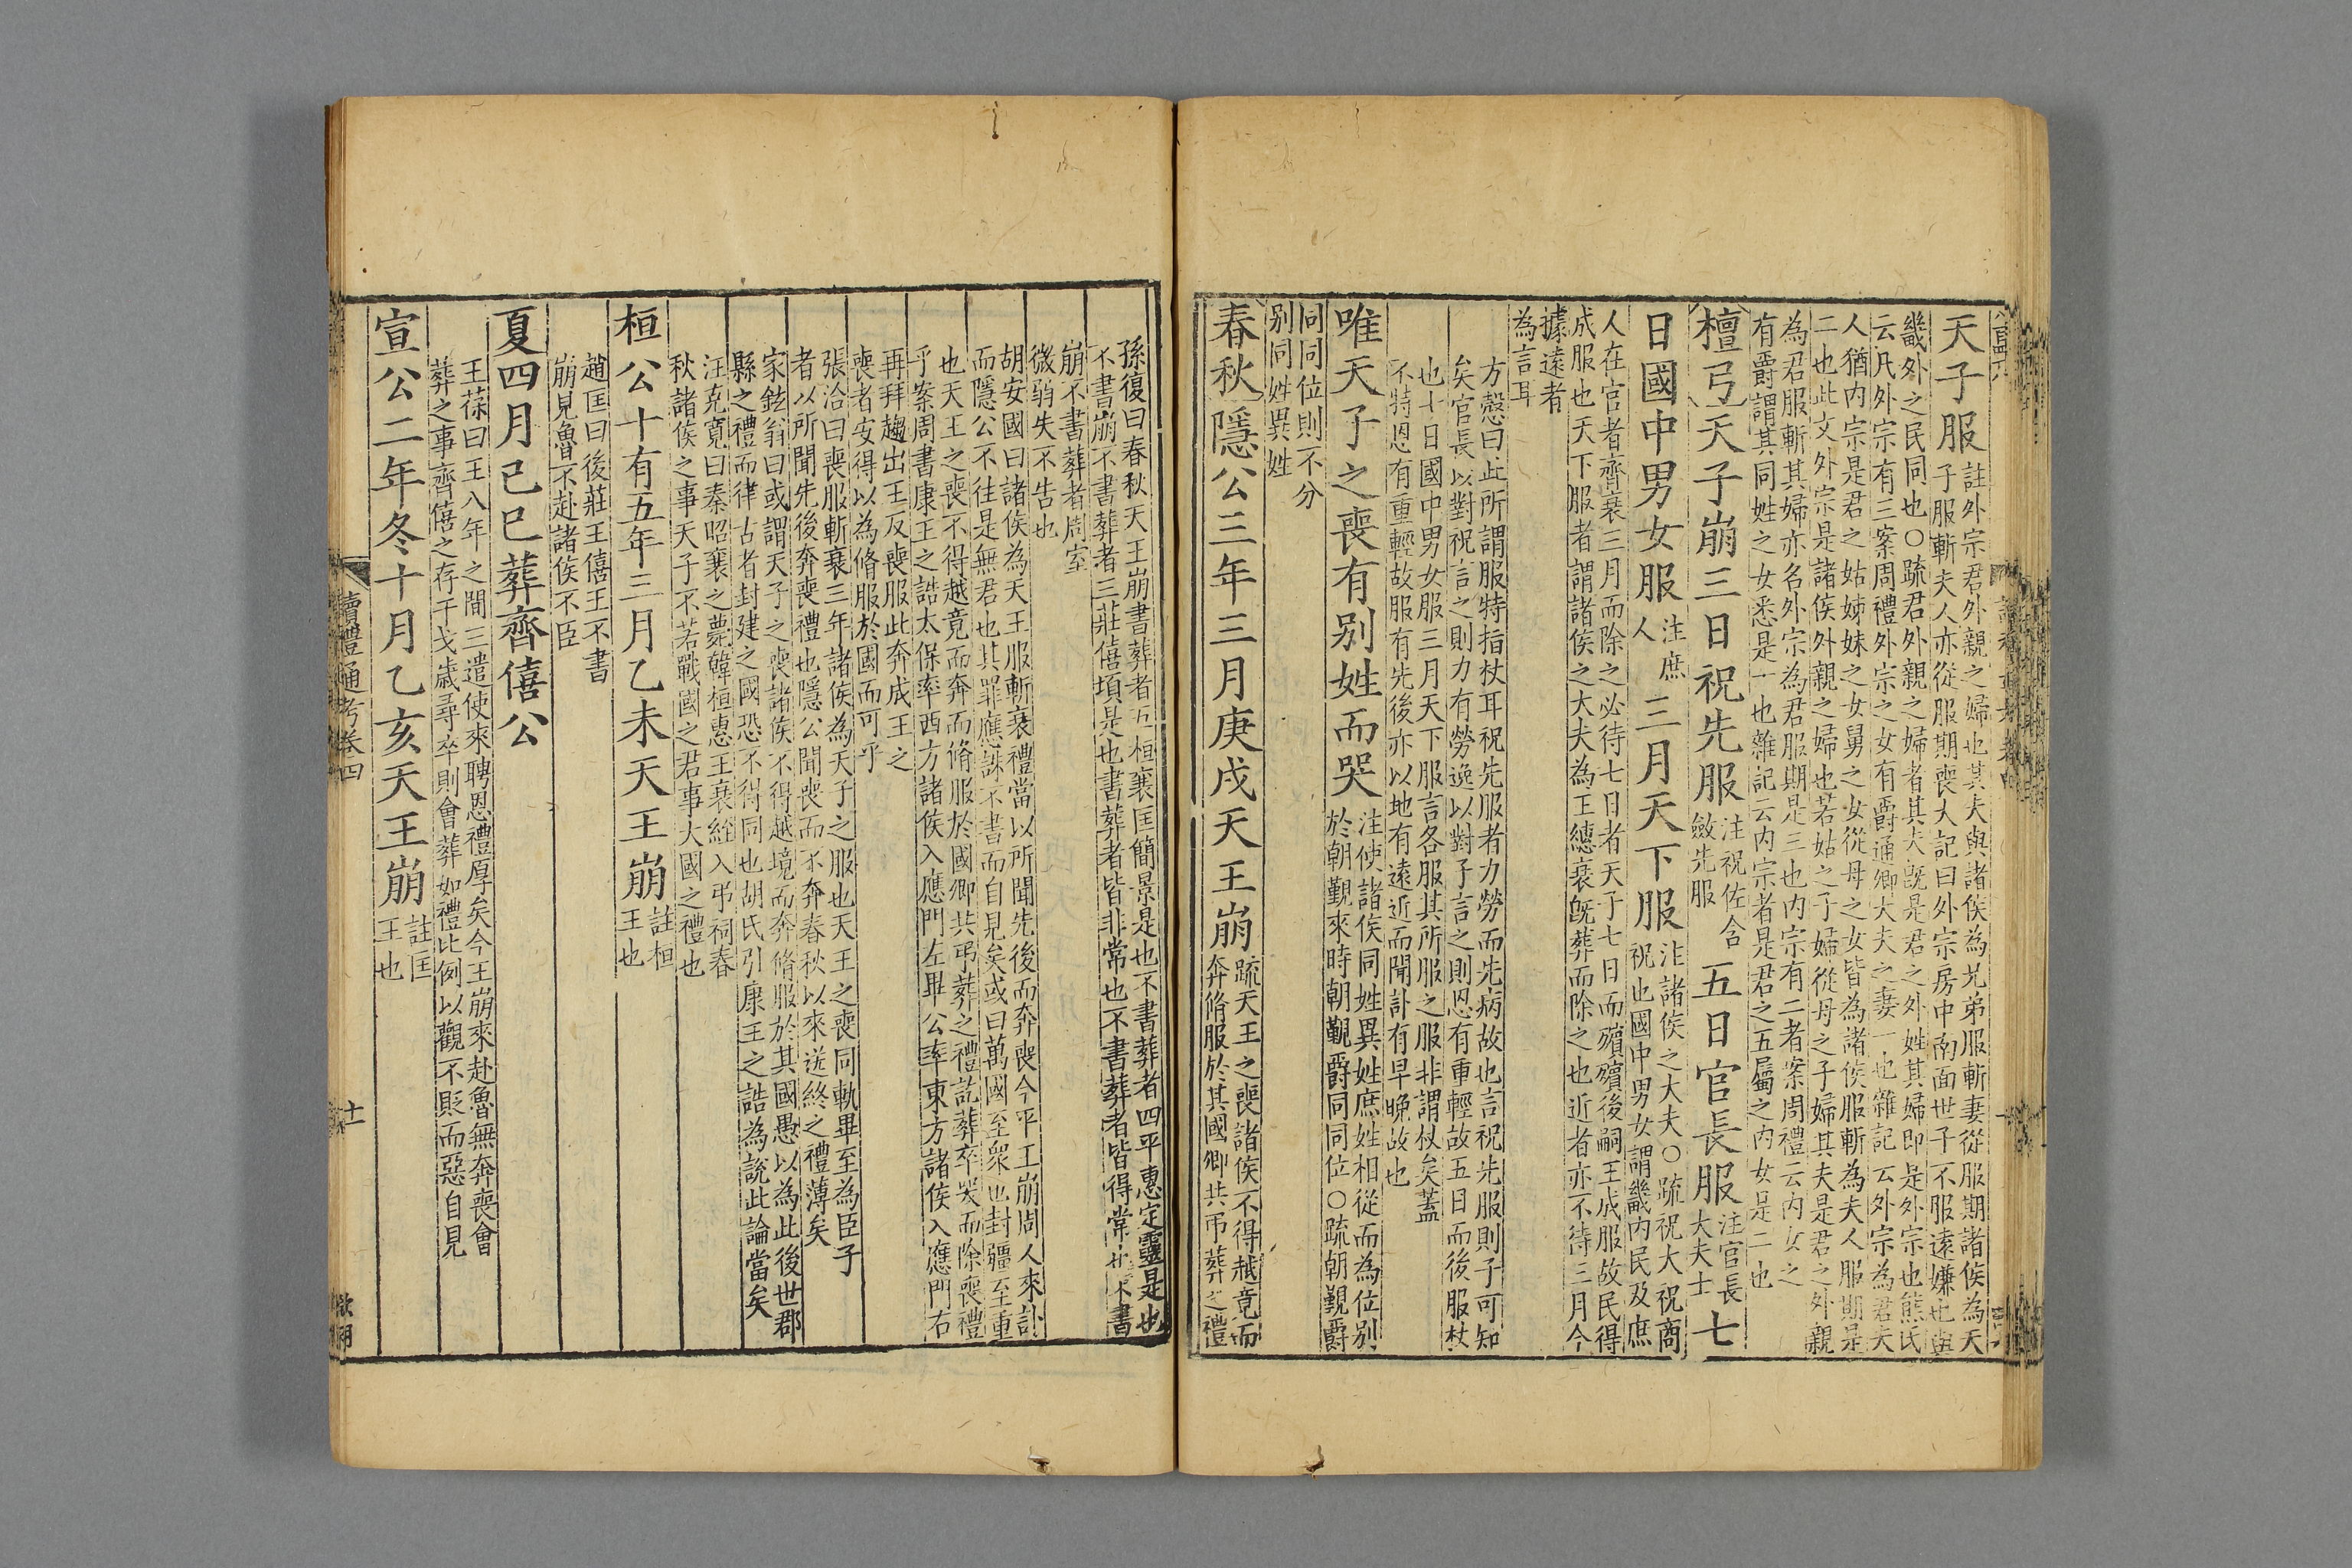 天子服
註外宗君外親之婦也其夫與諸侯為兄弟服斬妻從服期諸侯為天
子服斬夫人亦從服期喪大記曰外宗房中南面世子不服遠嫌也與
畿外之民同也○疏君外親之婦者其夫既是君之外姓其婦即是外宗也熊氏
云凡外宗有三案周禮外宗之女有爵通卿大夫之妻一也雜記云外宗為君夫
人猶內宗是君之姑姊妹之女舅之女從母之女皆為諸侯服斬為夫人服期是
二也此文外宗是諸侯外親之婦也若姑之子婦從母之子婦其夫是君之外親
為君服斬其婦亦名外宗為君服期是三也內宗有二者案周禮云內女之
有爵謂其同姓之女悉是一也雜記云內宗者是君之五屬之內女是二也
檀弓天子崩三日祝先服
注祝佐含
斂先服
五日官長服
注官長
大夫士
七
日國中男女服
注庶
人
三月天下服
注諸侯之大夫○疏祝大祝商
祝也國中男女謂畿內民及庶
人在官者齊衰三月而除之必待七日者天子七日而殯殯後嗣王成服故民得
成服也天下服者謂諸侯之大夫為王繐衰既葬而除之也近者亦不待三月今
據遠者
為言耳
方愨曰此所謂服特指杖耳祝先服者力勞而先病故也言祝先服則子可知
矣官長以對祝言之則力有勞逸以對子言之則恩有重輕故五日而後服杖
也七日國中男女服三月天下服言各服其所服之服非謂杖矣蓋
不特恩有重輕故服有先後亦以地有遠近而聞訃有早晚故也
唯天子之喪有别姓而哭
注使諸侯同姓異姓庶姓相從而為位别
於朝覲來時朝覲爵同同位○疏朝覲爵
同同位則不分
别同姓異姓
春秋隱公三年三月庚戌天王崩
疏天王之喪諸侯不得越竟而
奔脩服於其國卿共弔葬之禮
孫復曰春秋天王崩書葬者五桓襄匡簡景是也不書葬者四平惠定靈是也
不書崩不書葬者三莊僖頃是也書葬者皆非常也不書葬者皆得常也不書
崩不書葬者周室
微弱失不告也
胡安國曰諸侯為天王服斬衰禮當以所聞先後而奔喪今平王崩周人來訃
而隱公不往是無君也其罪應誅不書而自見矣或曰萬國至衆也封疆至重
也天王之喪不得越竟而奔而脩服於國卿共弔葬之禮訖葬卒哭而除喪禮
乎案周書康王之誥太保率西方諸侯入應門左畢公率東方諸侯入應門右
再拜趨出王反喪服此奔成王之
喪者安得以為脩服於國而可乎
張洽曰喪服斬衰三年諸侯為天子之服也天王之喪同軌畢至為臣子
者以所聞先後奔喪禮也隱公聞喪而不奔春秋以來送終之禮薄矣
家鉉翁曰或謂天子之喪諸侯不得越境而奔脩服於其國愚以為此後世郡
縣之禮而律古者封建之國恐不得同也胡氏引康王之誥為說此論當矣
汪克寬曰秦昭襄之薨韓桓惠王衰絰入弔祠春
秋諸侯之事天子不若戰國之君事大國之禮也
桓公十有五年三月乙未天王崩
註桓
王也
趙匡曰後莊王僖王不書
崩見魯不赴諸侯不臣
夏四月己巳葬齊僖公
王葆曰王八年之間三遣使來聘恩禮厚矣今王崩來赴魯無奔喪會
葬之事齊僖之存干戈歲尋卒則會葬如禮比例以觀不貶而惡自見
宣公二年冬十月乙亥天王崩
註匡
王也
讀禮通考卷四
十一